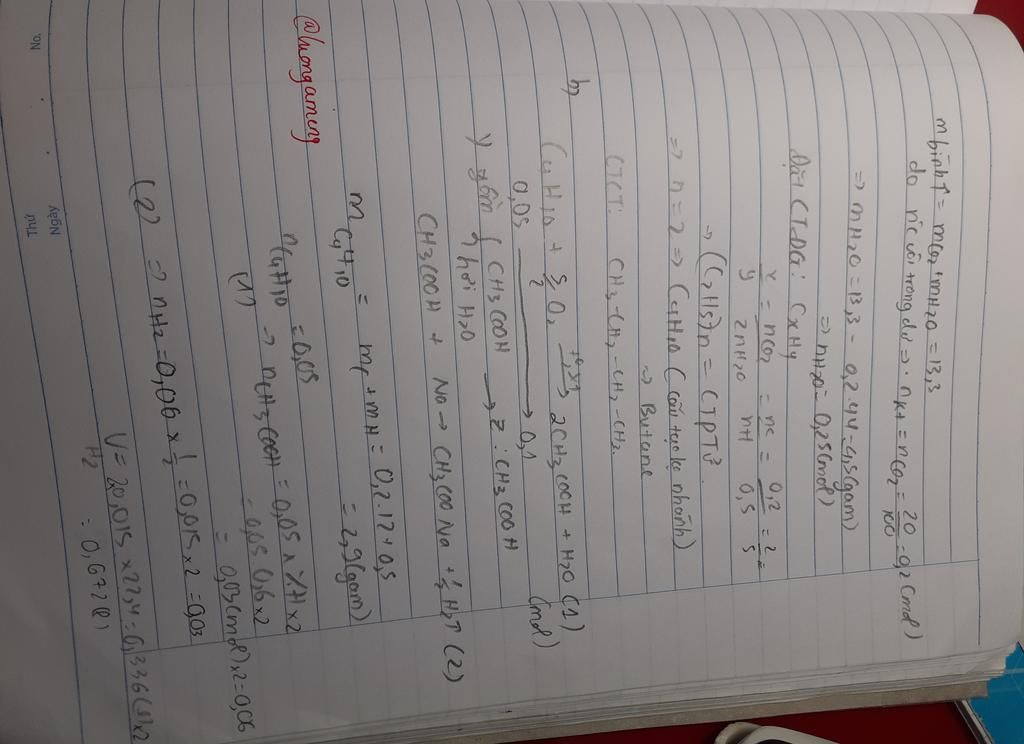 No.
Thứ
Ngày
m bình↑ = mCO2 + mH2O = 13,3
do nước vôi trong dư => nK1 = nCO2 = 20/100 = 0,2 (mol)
=> mH2O = 13,3 - 0,2.44 = 4,5 (gam)
=> nH2O = 0,25 (mol)
Đặt CTĐG: CxHy
x/y = nCO2/2nH2O = nC/nH = 0,2/0,5 = 2/5
=> (C2H5)n = CTPTX
=> n = 2 => C4H10 (cấu tạo k nhánh)
=> Butane
CTCT: CH3-CH2-CH2-CH2.
b,
C4H10 + 5/2 O2 → 2CH3COOH + H2O (1)
0,05 → 0,1 (mol)
Y gồm { CH3COOH → Z: CH3COOH
hơi H2O
CH3COOH + Na → CH3COONa + 1/2 H2↑ (2)
mC4H10 = mC + mH = 0,2.12 + 0,5
= 2,9 (gam)
nC4H10 = 0,05
(1) → nCH3COOH = 0,05 x %H x2
= 0,05.0,6x2
= 0,03 (mol) x2 = 0,06
(2) => nH2 = 0,06 x 1/2 = 0,015 x2 = 0,03
VH2 = 20,015 x 22,4 = 0,336 (l) x2
= 0,672 (l)
@luongaming